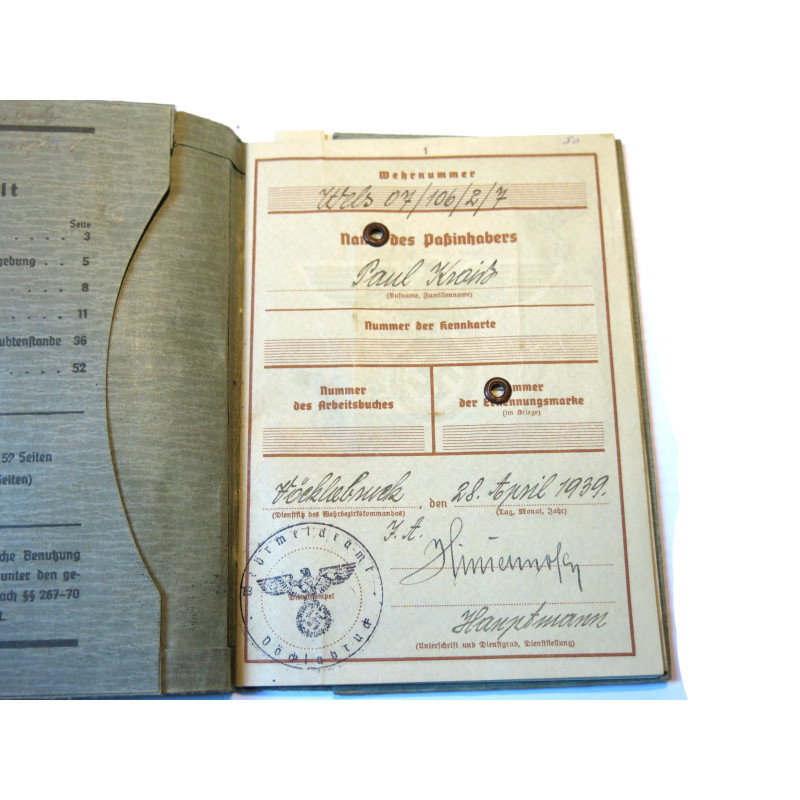 lt
Seite
. . . . . 3
gebung . . 5
. . . . . 8
. . . . . 11
ubtenstande 36
. . . . . 52
52 Seiten
Seiten)
che Benutzung
unter den ge-
ach §§ 267–70
t.
50
1
Wehrnummer
Wels 07/106/2/7
Na des Paßinhabers
Paul
(Rufname, Familienname)
Nummer der Kennkarte
Nummer
des Arbeitsbuches
ummer
der Erkennungsmarke
(im Kriege)
Vöcklabruck, den 28. April 1939.
(Dienstsitz des Wehrbezirkskommandos) (Tag, Monat, Jahr)
J. A.
Wehrmeldeamt
Dienststempel
Vöcklabruck
Hauptmann
(Unterschrift und Dienstgrad, Dienststellung)